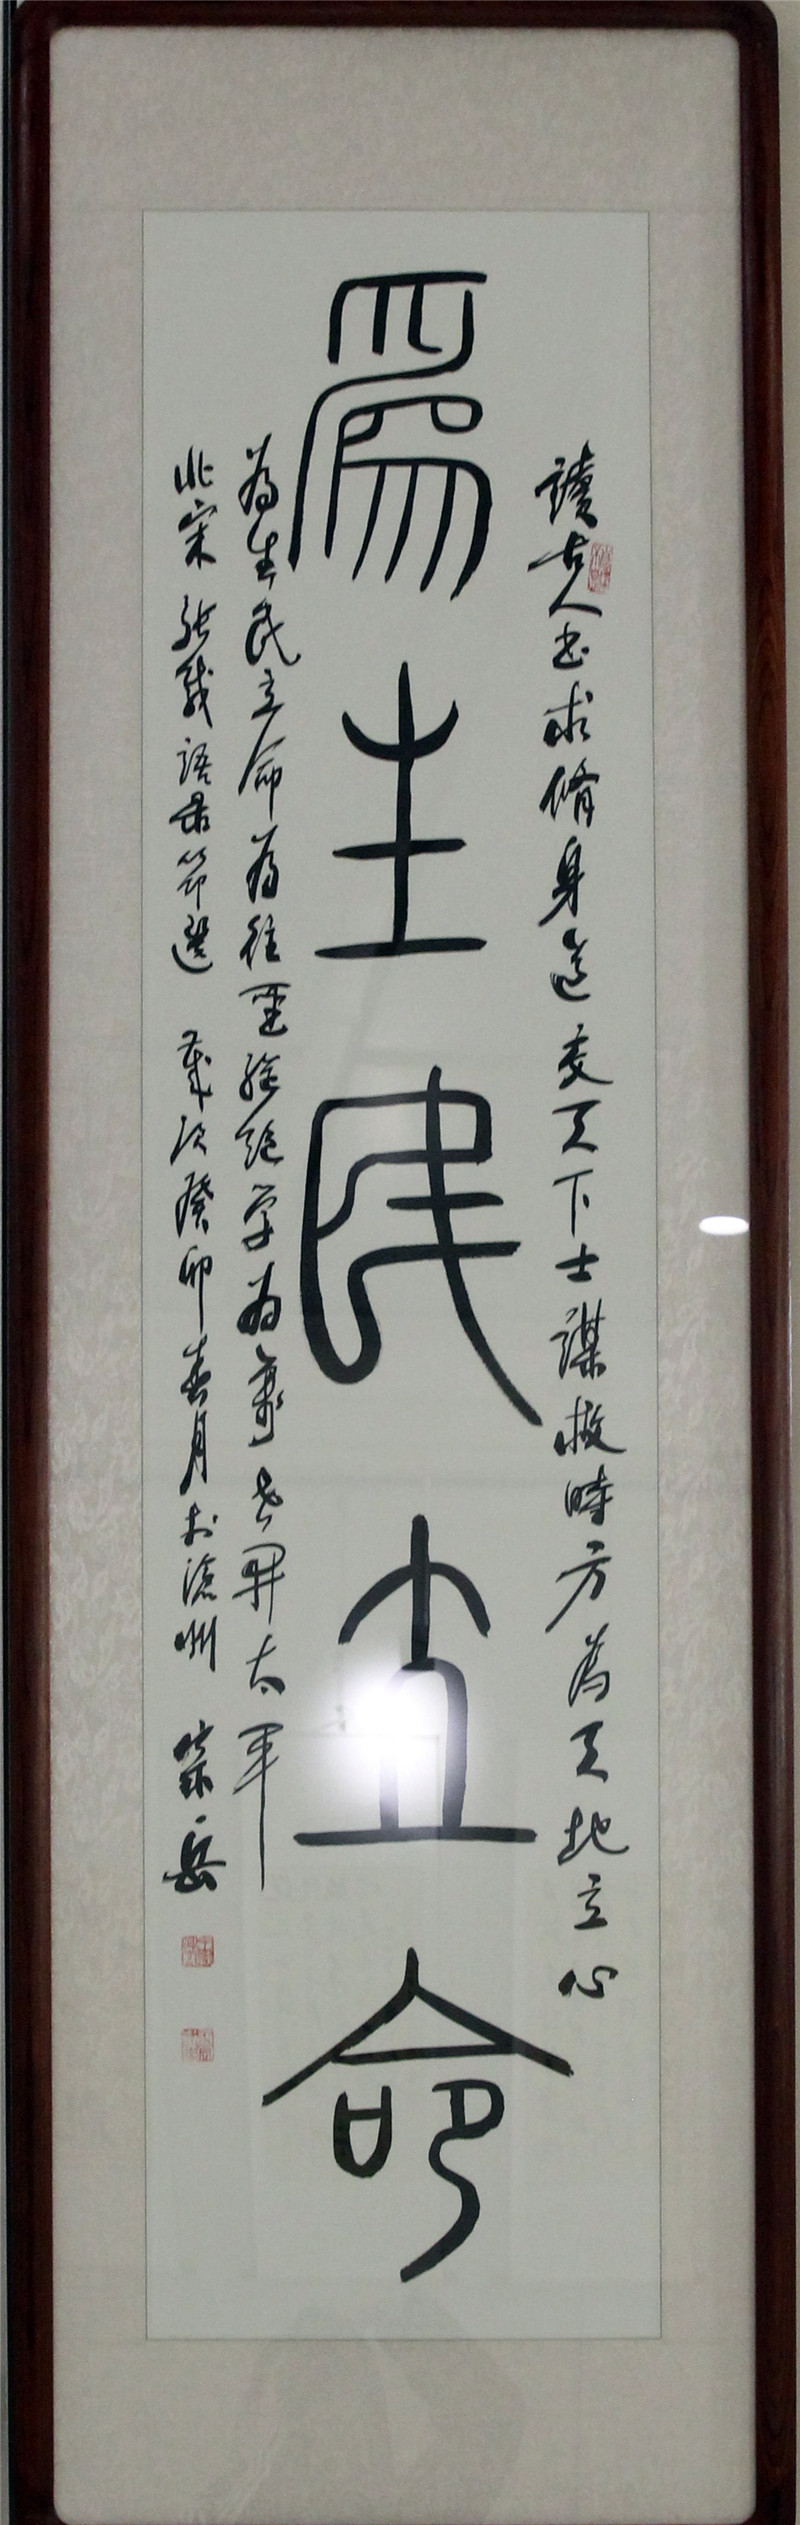 讀古人書求脩身道交天下士謀救時方為天地立心
為生民立命
為生民立命為往聖繼絕学為萬世開太平
北宋張載語录節選 歲次癸卯春月於滄州 宗岳